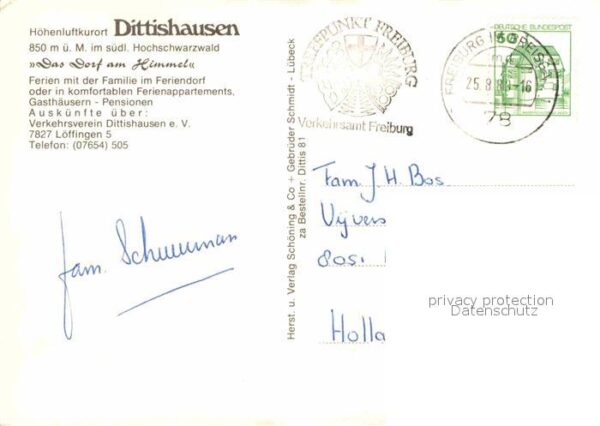 Höhenluftkurort Dittishausen
850 m ü. M. im südl. Hochschwarzwald
»Das Dorf am Himmel«
Ferien mit der Familie im Feriendorf
oder in komfortablen Ferienappartements,
Gasthäusern - Pensionen
Auskünfte über:
Verkehrsverein Dittishausen e. V.
7827 Löffingen 5
Telefon: (07654) 505
fam. Schuurman
Herst. u. Verlag Schöning & Co + Gebrüder Schmidt - Lübeck
za Bestellnr. Dittis 81
TREFFPUNKT FREIBURG
Verkehrsamt Freiburg
DEUTSCHE BUNDESPOST
50
FREIBURG IM BREISGAU
25.8.83-16
78
Fam. J. H. Bos
Vijvers
8051
Holla
privacy protection
Datenschutz